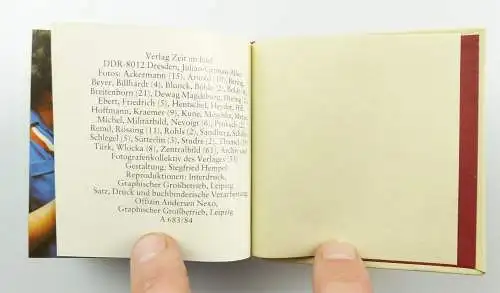 Verlag Zeit im Bild
DDR-8012 Dresden, Julian-Grimau-Allee
Fotos: Ackermann (15), Arnold (10),
Beyer, Billhardt (4), Blunck, Böhle (2),
Breitenborn (21), Dewag Magdeburg,
Ebert, Friedrich (5), Hentschel,
Hoffmann, Kraemer (9),
Michel, Militärbild, Nevoigt (6),
Remd, Rössing (11), Rohls (2), Sandberg,
Schlegel (5), Sütterlin (3), Studre (2),
Türk, Wlocka (8), Zentralbild (61), Archiv und
Fotografenkollektiv des Verlages
Gestaltung: Siegfried Hempel
Reproduktionen: Interdruck,
Graphischer Großbetrieb, Leipzig
Satz, Druck und buchbinderische Verarbeitung:
Offizin Andersen Nexö,
Graphischer Großbetrieb, Leipzig
A 683/84